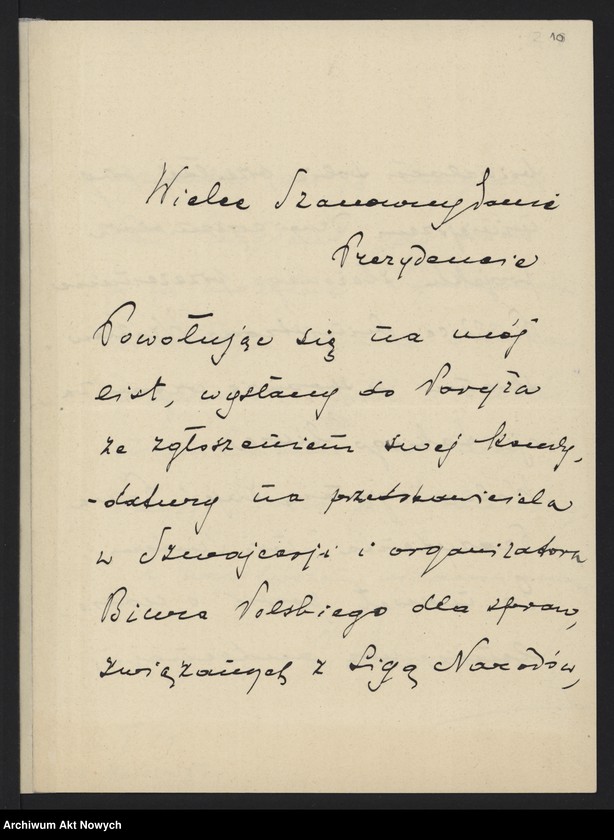 10
Wielce Szanowny Panie
Prezydencie
Powołując się na mój
list, wysłany do Paryża
ze zgłoszeniem swej kandy-
-datury na przedstawiciela
w Szwajcarji i organizatora
Biura Polskiego dla spraw,
związanych z Ligą Narodów,
Archiwum Akt Nowych